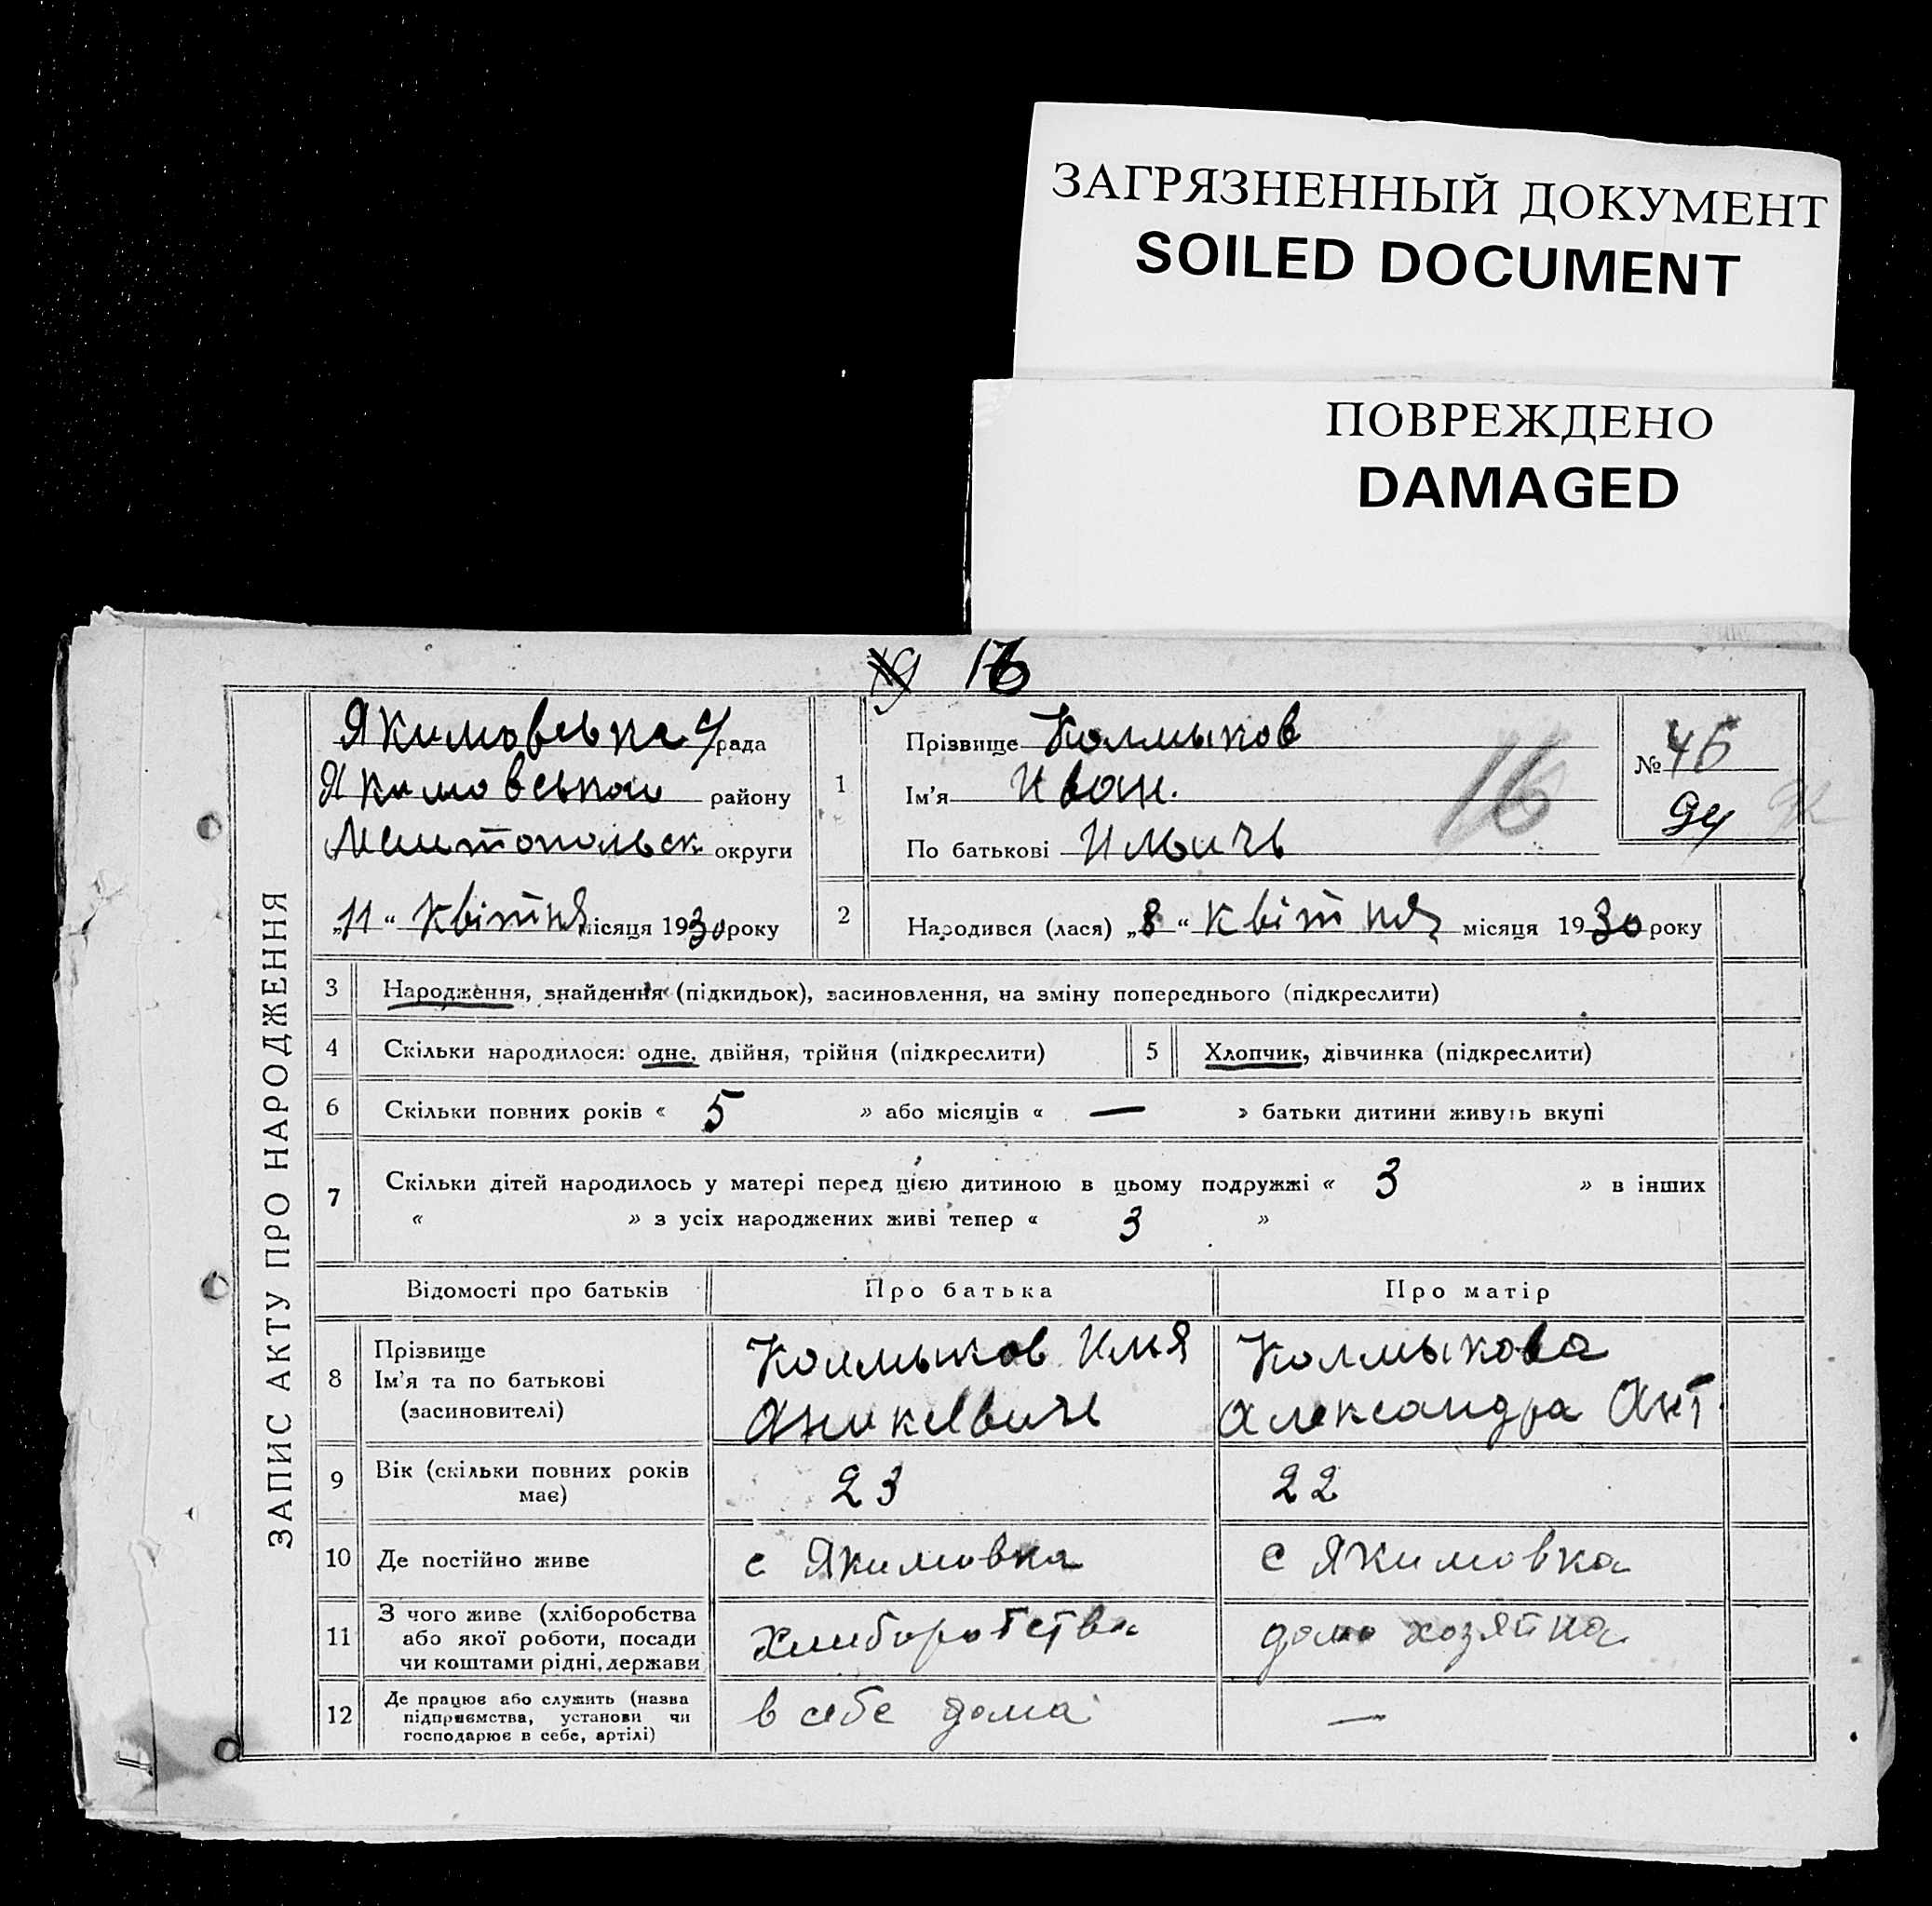 ЗАГРЯЗНЕННЫЙ ДОКУМЕНТ
SOILED DOCUMENT
ПОВРЕЖДЕНО
DAMAGED
16
ЗАПИС АКТУ ПРО НАРОДЖЕННЯ
Якимовська с/рада
Якимовського району
Мелитопольск округи
„11“ Квітня місяця 1930 року
1
Прізвище Колмыков
Ім'я Иван.
По батькові Ильичь
16
№ 46
94
2
Народився (лася) „8“ Квітня місяця 1930 року
3 Народження, знайдення (підкидьок), засиновлення, на зміну попереднього (підкреслити)
4 Скільки народилося: одне, двійня, трійня (підкреслити) 5 Хлопчик, дівчинка (підкреслити)
6 Скільки повних років « 5 » або місяців « — » батьки дитини живуть вкупі
7 Скільки дітей народилось у матері перед цією дитиною в цьому подружжі « 3 » в інших
« » з усіх народжених живі тепер « 3 »
Відомості про батьків Про батька Про матір
8 Прізвище
Ім'я та по батькові
(засиновителі)
Колмыков Илия
Аникевичь
Колмыкова
Александра Ант.
9 Вік (скільки повних років
має)
23 22
10 Де постійно живе с Якимовка с Якимовка
11 З чого живе (хліборобства
або якої роботи, посади
чи коштами рідні, держави
хлиборобства домохозяйка
12 Де працює або служить (назва
підприємства, установи чи
господарює в себе, артілі)
в себе дома —